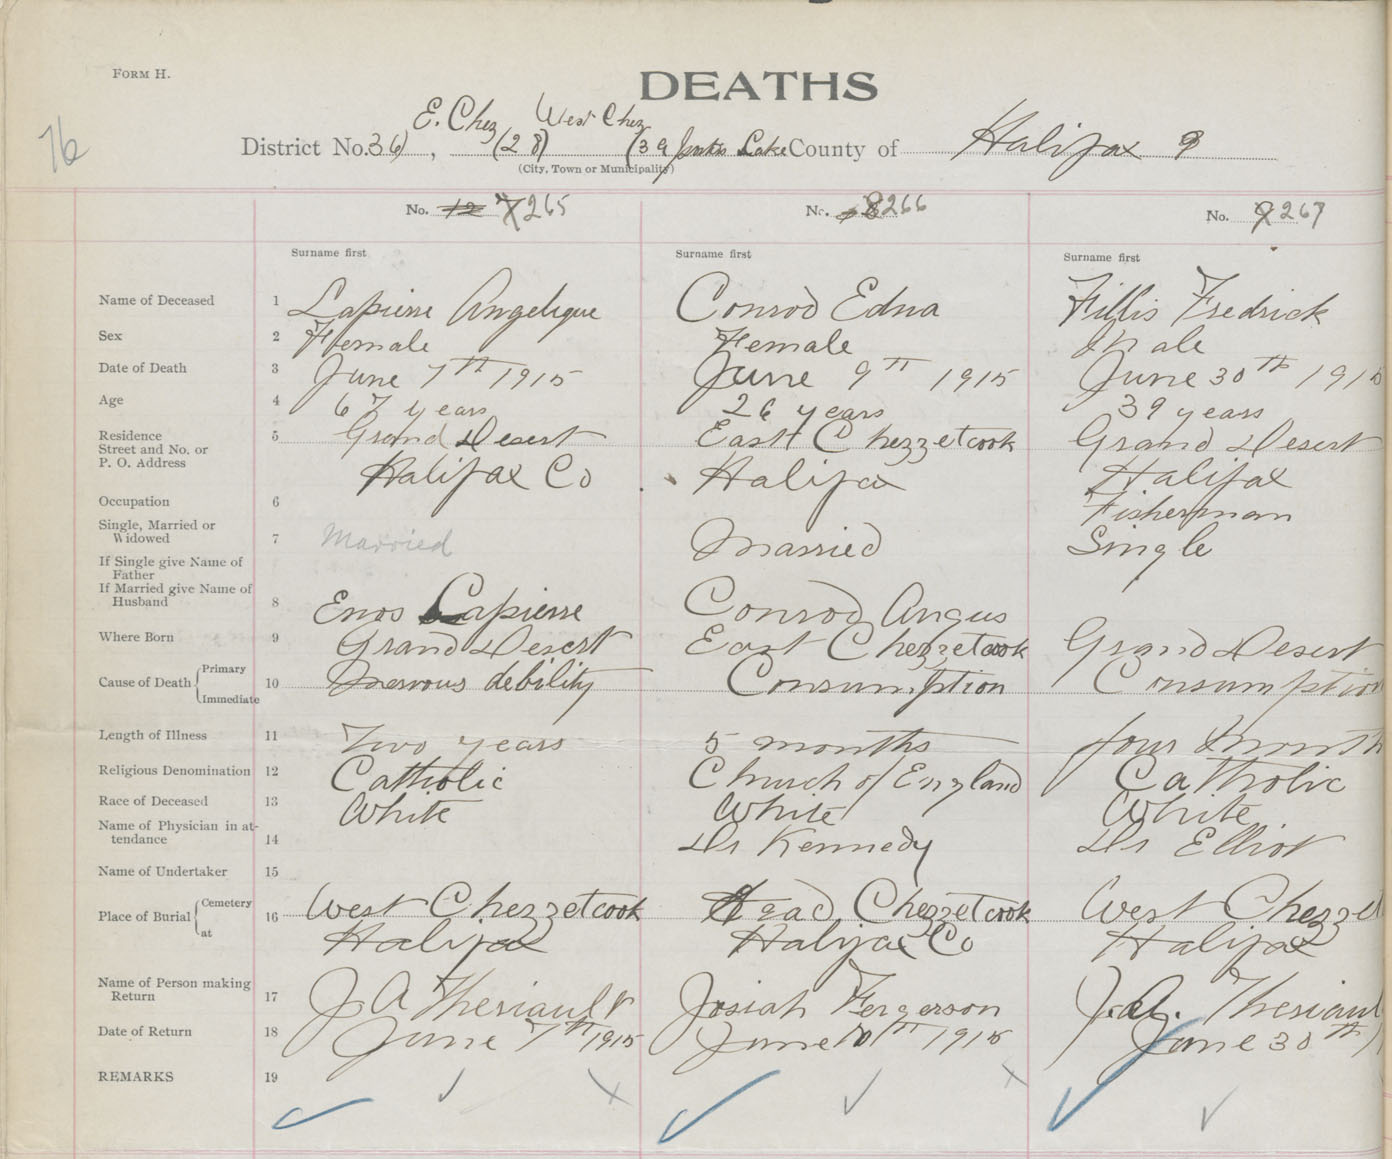 FORM H.
DEATHS
76
E. Chez West Chez
District No. 36) , (28) (39 Lake County of Halifax 9
(City, Town or Municipality)
No. 12 7 265
No. 8 266
No. 9 267
Surname first
Surname first
Surname first
Name of Deceased 1 Lapierre Angelique Conrod Edna Fillis Fredrick
Sex 2 Female Female Male
Date of Death 3 June 7th 1915 June 9th 1915 June 30th 1915
Age 4 67 years 26 years 39 years
Residence 5 Grand Desert East Chezzetcook Grand Desert
Street and No. or
P. O. Address Halifax Co Halifax Halifax
Occupation 6 Fisherman
Single, Married or
Widowed 7 Married Married Single
If Single give Name of
Father
If Married give Name of
Husband 8 Enos Lapierre Conrod Angus
Where Born 9 Grand Desert East Chezzetcook Grand Desert
Cause of Death { Primary Immediate 10 Nervous debility Consumption Consumption
Length of Illness 11 Two years 5 months four month
Religious Denomination 12 Catholic Church of England Catholic
Race of Deceased 13 White White White
Name of Physician in at-
tendance 14 Dr Kennedy Dr Elliot
Name of Undertaker 15
Place of Burial { Cemetery at 16 West Chezzetcook Head Chezzetcook West Chezzet
Halifax Halifax Co Halifax
Name of Person making
Return 17 J A Theriault Josiah Fergerson J. A. Theriaul
Date of Return 18 June 7th 1915 June 10th 1915 June 30th
REMARKS 19